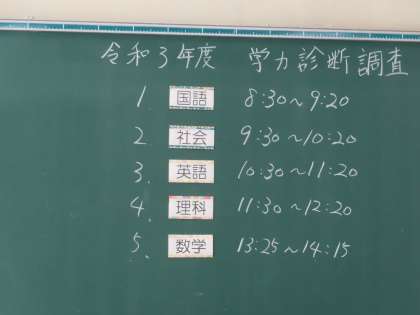 令和3年度 学力診断調査
1. 国語 8:30～9:20
2 社会 9:30～10:20
3. 英語 10:30～11:20
4. 理科 11:30～12:20
5. 数学 13:25～14:15